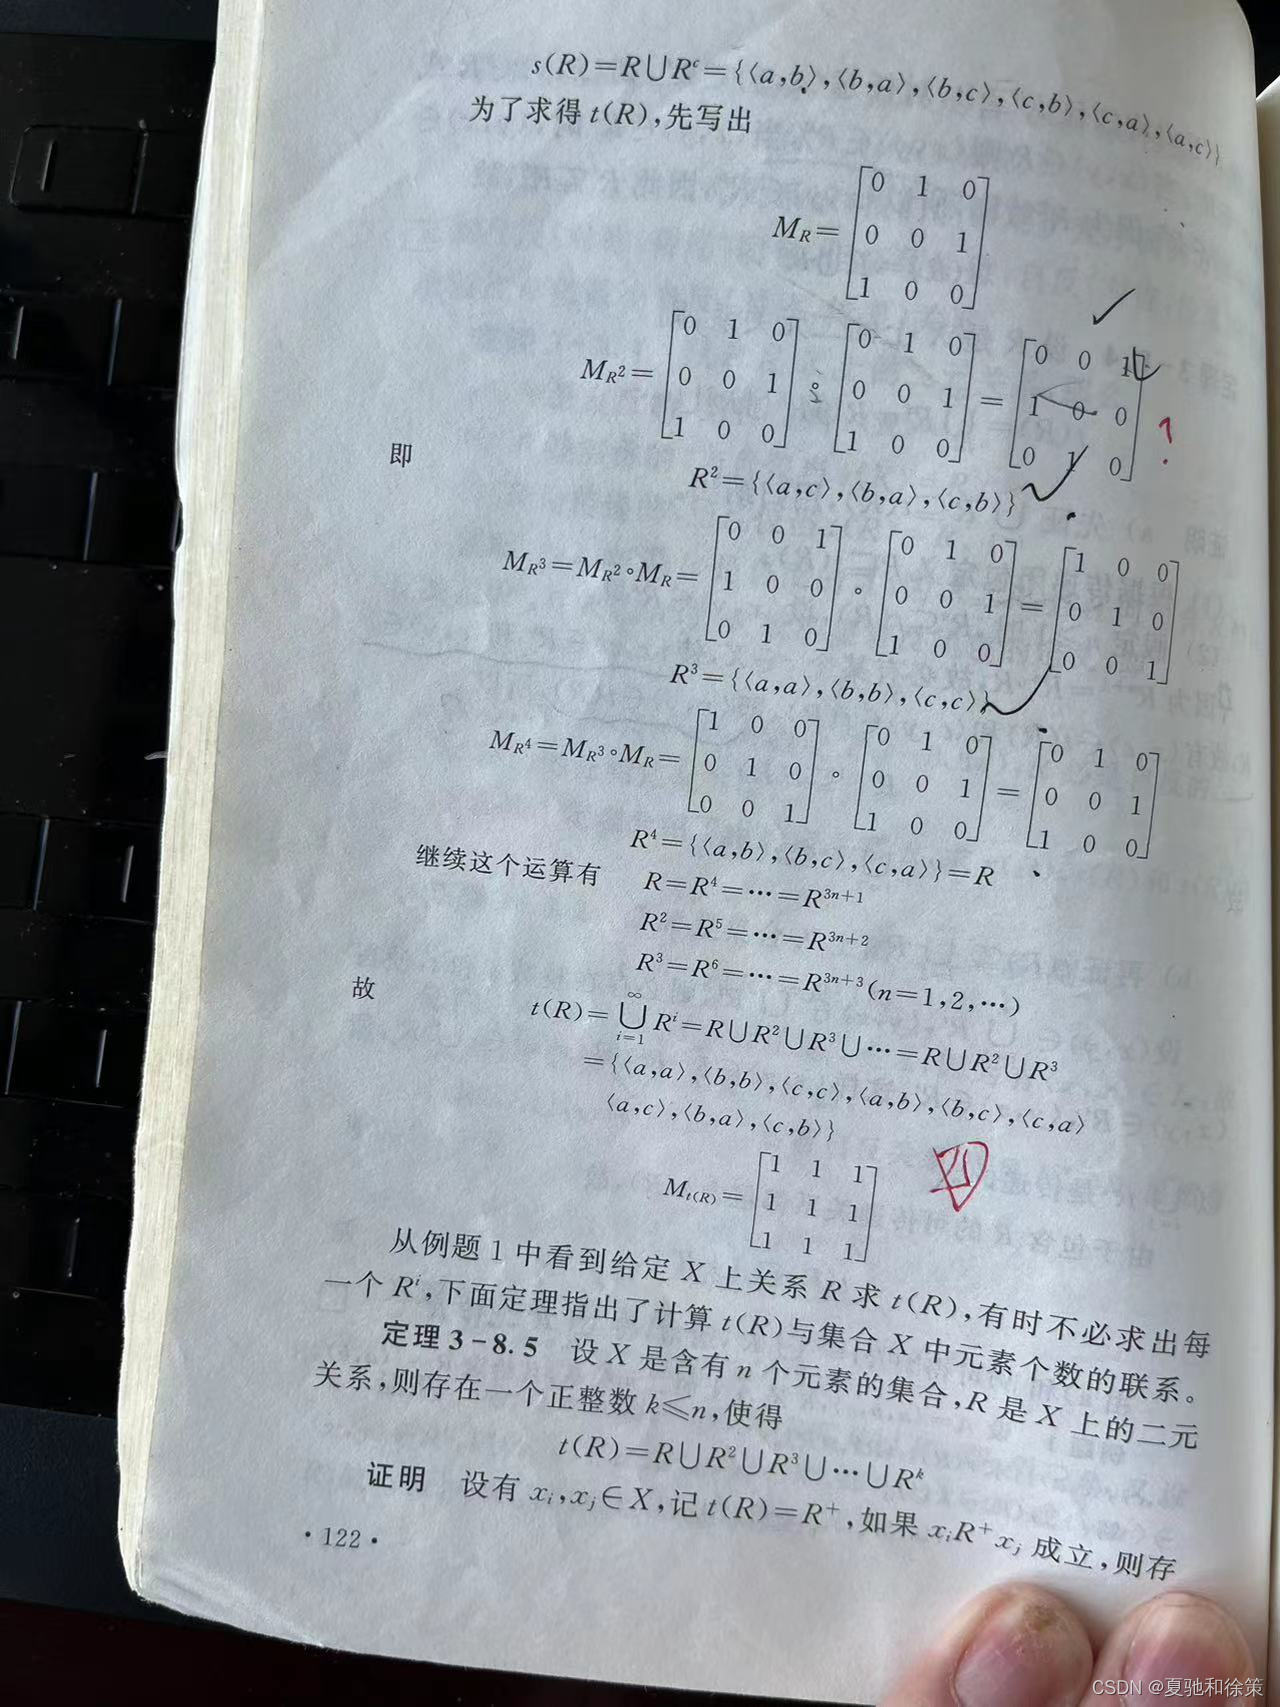 s(R)=R∪Rᶜ={⟨a,b⟩,⟨b,a⟩,⟨b,c⟩,⟨c,b⟩,⟨c,a⟩,⟨a,c⟩}
为了求得 t(R),先写出
M_R=[0 1 0; 0 0 1; 1 0 0]
M_{R²}=[0 1 0; 0 0 1; 1 0 0]∘[0 1 0; 0 0 1; 1 0 0]=[0 0 1; 1 0 0; 0 1 0] ?
即
R²={⟨a,c⟩,⟨b,a⟩,⟨c,b⟩}
M_{R³}=M_{R²}∘M_R=[0 0 1; 1 0 0; 0 1 0]∘[0 1 0; 0 0 1; 1 0 0]=[1 0 0; 0 1 0; 0 0 1]
R³={⟨a,a⟩,⟨b,b⟩,⟨c,c⟩}
M_{R⁴}=M_{R³}∘M_R=[1 0 0; 0 1 0; 0 0 1]∘[0 1 0; 0 0 1; 1 0 0]=[0 1 0; 0 0 1; 1 0 0]
R⁴={⟨a,b⟩,⟨b,c⟩,⟨c,a⟩}=R
继续这个运算有 R=R⁴=⋯=R³ⁿ⁺¹
R²=R⁵=⋯=R³ⁿ⁺²
R³=R⁶=⋯=R³ⁿ⁺³(n=1,2,⋯)
故
t(R)=⋃_{i=1}^{∞}Rⁱ=R∪R²∪R³∪⋯=R∪R²∪R³
={⟨a,a⟩,⟨b,b⟩,⟨c,c⟩,⟨a,b⟩,⟨b,c⟩,⟨c,a⟩
⟨a,c⟩,⟨b,a⟩,⟨c,b⟩}
M_{t(R)}=[1 1 1; 1 1 1; 1 1 1]
从例题 1 中看到给定 X 上关系 R 求 t(R),有时不必求出每
一个 Rⁱ,下面定理指出了计算 t(R)与集合 X 中元素个数的联系。
定理 3-8.5 设 X 是含有 n 个元素的集合,R 是 X 上的二元
关系,则存在一个正整数 k≤n,使得
t(R)=R∪R²∪R³∪⋯∪Rᵏ
证明 设有 xᵢ,xⱼ∈X,记 t(R)=R⁺,如果 xᵢR⁺xⱼ 成立,则存
·122·
CSDN @夏驰和徐策